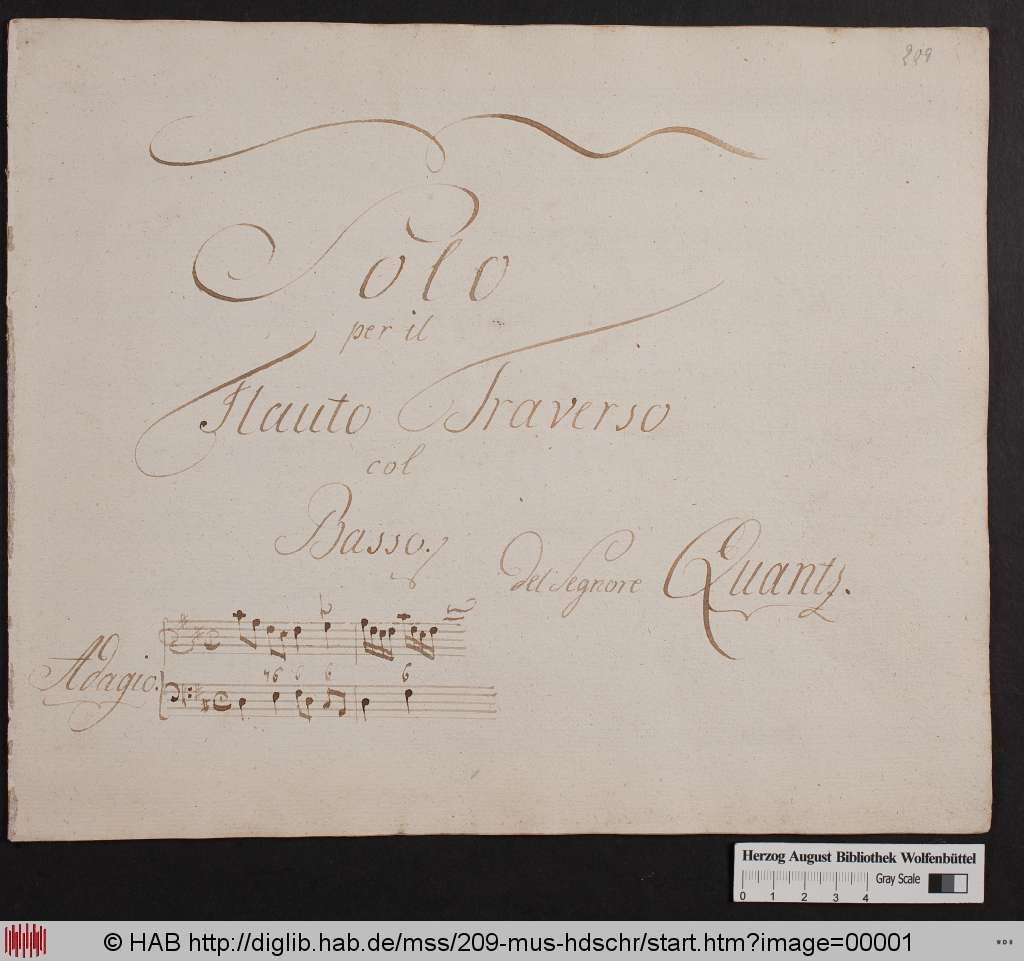 209
Solo
per il
Flauto Traverso
col
Basso.
del Segnore Quantz.
Adagio.
6
6
6
6
Herzog August Bibliothek Wolfenbüttel
Gray Scale
0 1 2 3 4
© HAB http://diglib.hab.de/mss/209-mus-hdschr/start.htm?image=00001